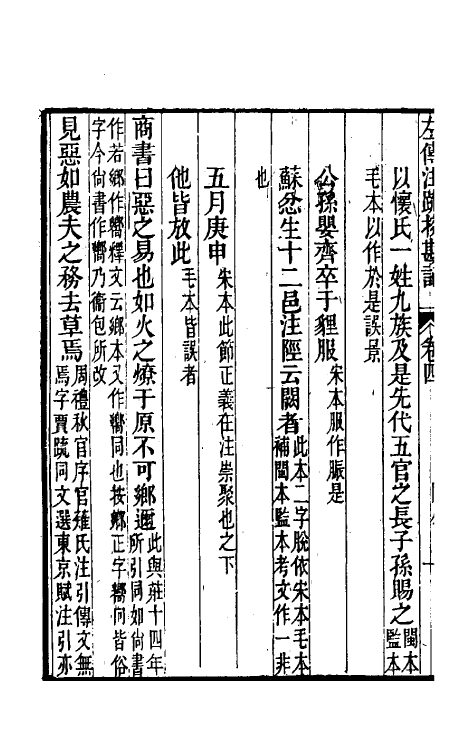 左傳注疏校勘記 卷四
以懷氏一姓九族及是先代五官之長子孫賜之閩本監本
毛本以作於是誤景
公孫嬰齊卒于貍服宋本服作脤是
蘇忿生十二邑注陘云闕者此本二字脫依宋本毛本補閩本監本考文作一非
也
五月庚申宋本此節正義在注崇聚也之下
他皆放此毛本皆誤者
商書曰惡之易也如火之燎于原不可鄉邇此與莊十四年所引同如尚書
作若鄉作嚮釋文云鄉本又作嚮同也按鄉正字嚮向皆俗字今尚書作嚮乃衞包所改
見惡如農夫之務去草焉周禮秋官序官薙氏注引傳文無焉字賈疏同文選東京賦注引亦